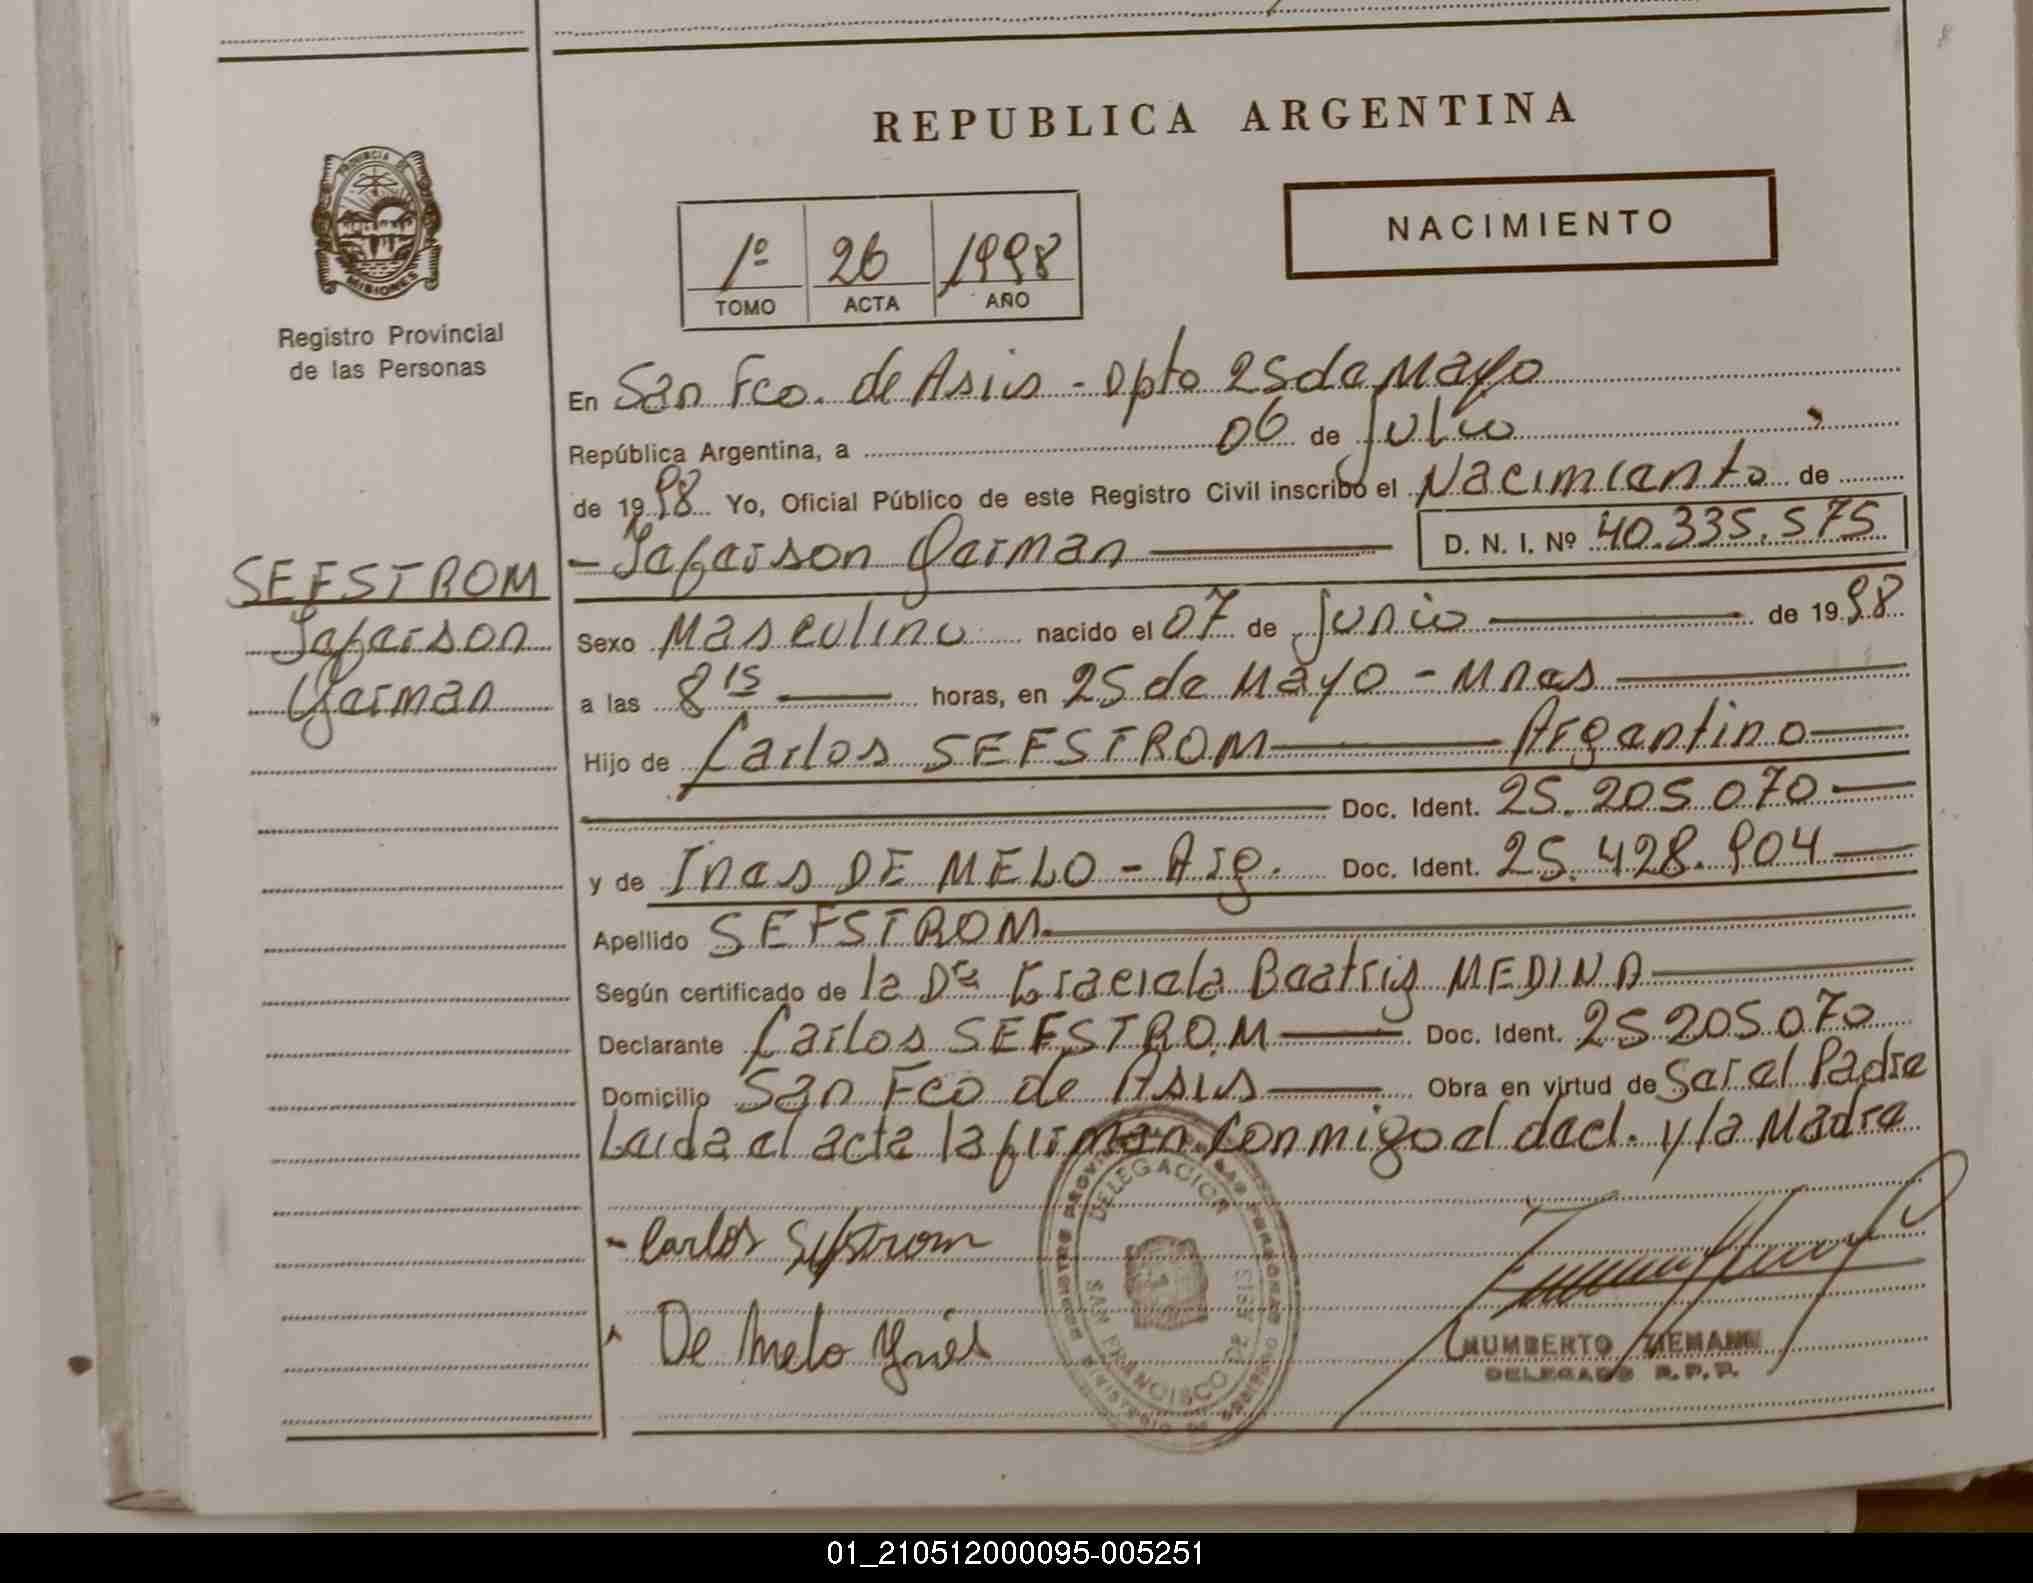 REPUBLICA ARGENTINA
PROVINCIA DE
MISIONES
Registro Provincial
de las Personas
NACIMIENTO
1º 26 1998
TOMO ACTA AÑO
En San Fco. de Asis - Dpto 25 de Mayo
República Argentina, a 06 de Julio
de 1998 Yo, Oficial Público de este Registro Civil inscribo el Nacimiento de
- Jeferson German D. N. I. Nº 40.335.575
SEFSTROM
Jeferson
German
Sexo Masculino nacido el 07 de Junio de 1998
a las 8 15 horas, en 25 de Mayo - Mnes
Hijo de Carlos SEFSTROM Argentino
Doc. Ident. 25.205.070
y de Ines DE MELO - Arg. Doc. Ident. 25.428.904
Apellido SEFSTROM
Según certificado de la Dra Graciela Beatriz MEDINA
Declarante Carlos SEFSTROM Doc. Ident. 25205070
Domicilio San Fco de Asis Obra en virtud de Ser el Padre
Leida el acta la firman conmigo el decl. y la Madre
- Carlos Sefstrom
De Melo Ynés
DELEGACION
SAN FRANCISCO DE ASIS
HUMBERTO ZIEMANN
DELEGADO R.P.P.
01_210512000095-005251